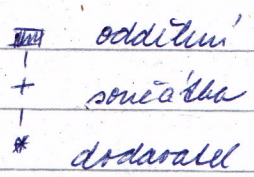 oddělení
+ součástka
* dodavatel